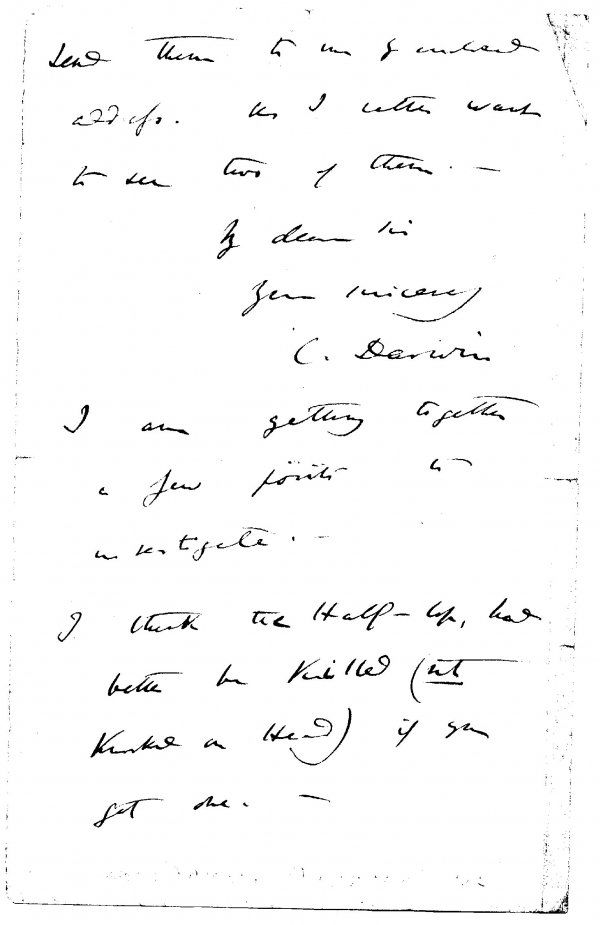 send them to me by enclosed
address. As I rather want
to see two of them. —
My dear Sir
Yours sincerely
C. Darwin
I am getting together
a few points to
investigate. —
I think the Half-lop, had
better be killed (not
knocked on Head) if you
get one. —